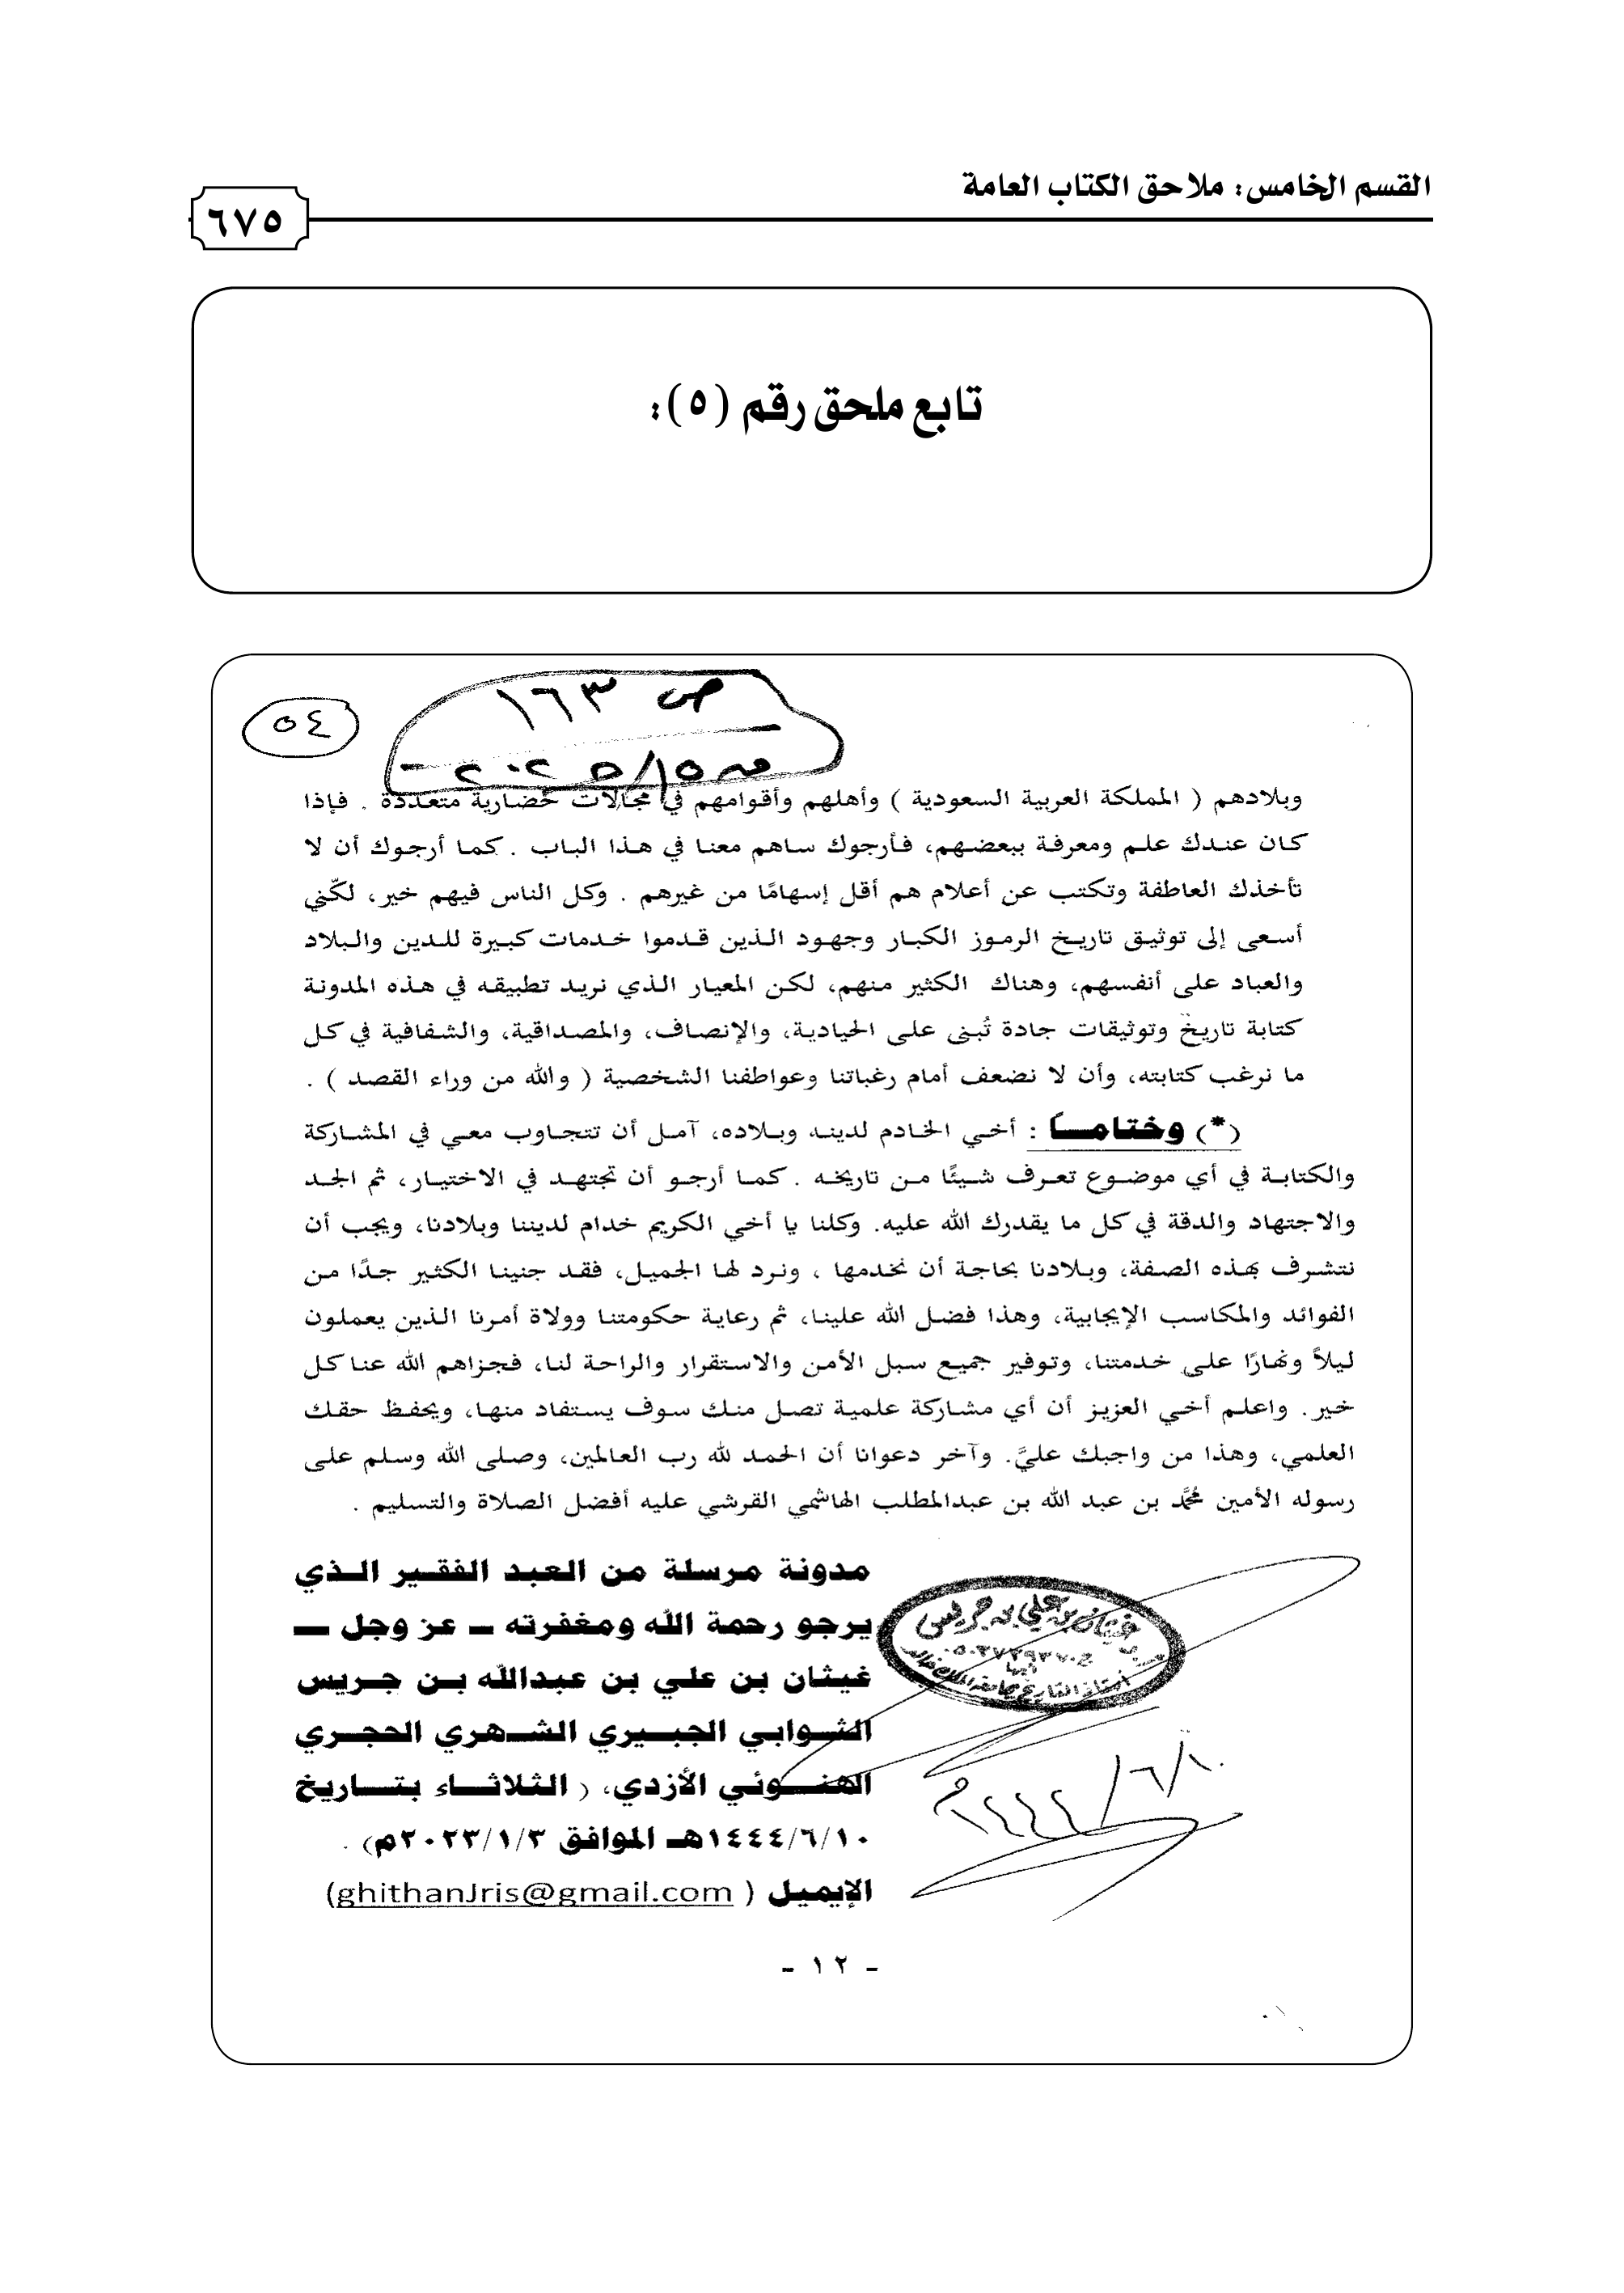 القسم الخامس: ملاحق الكتاب العامة
٦٧٥
تابع ملحق رقم (٥):
ص ١٦٣
٥٤
وبلادهم ( المملكة العربية السعودية ) وأهلهم وأقوامهم في مجالات حضارية متعددة . فإذا
كان عندك علم ومعرفة ببعضهم، فأرجوك ساهم معنا في هذا الباب . كما أرجوك أن لا
تأخذك العاطفة وتكتب عن أعلام هم أقل إسهامًا من غيرهم . وكل الناس فيهم خير، لكنّي
أسعى إلى توثيق تاريخ الرموز الكبار وجهود الذين قدموا خدمات كبيرة للدين والبلاد
والعباد على أنفسهم، وهناك الكثير منهم، لكن المعيار الذي نريد تطبيقه في هذه المدونة
كتابة تاريخ وتوثيقات جادة تُبنى على الحيادية، والإنصاف، والمصداقية، والشفافية في كل
ما نرغب كتابته، وأن لا نضعف أمام رغباتنا وعواطفنا الشخصية ( والله من وراء القصد ) .
(*) وختامـــاً : أخي الخادم لدينه وبلاده، آمل أن تتجاوب معي في المشاركة
والكتابة في أي موضوع تعرف شيئًا من تاريخه . كما أرجو أن تجتهد في الاختيار، ثم الجد
والاجتهاد والدقة في كل ما يقدرك الله عليه. وكلنا يا أخي الكريم خدام لديننا وبلادنا، ويجب أن
نتشرف بهذه الصفة، وبلادنا بحاجة أن نخدمها ، ونرد لها الجميل، فقد جنينا الكثير جدًا من
الفوائد والمكاسب الإيجابية، وهذا فضل الله علينا، ثم رعاية حكومتنا وولاة أمرنا الذين يعملون
ليلاً ونهارًا على خدمتنا، وتوفير جميع سبل الأمن والاستقرار والراحة لنا، فجزاهم الله عنا كل
خير. واعلم أخي العزيز أن أي مشاركة علمية تصل منك سوف يستفاد منها، ويحفظ حقك
العلمي، وهذا من واجبك عليَّ. وآخر دعوانا أن الحمد لله رب العالمين، وصلى الله وسلم على
رسوله الأمين محمَّد بن عبد الله بن عبدالمطلب الهاشمي القرشي عليه أفضل الصلاة والتسليم .
مدونة مرسلة من العبد الفقير الذي
يرجو رحمة الله ومغفرته – عز وجل –
غيثان بن علي بن عبدالله بن جريس
الثوابي الجبيري الشهري الحجري
الهنوئي الأزدي، ( الثلاثاء بتاريخ
١٤٤٤/٦/١٠هـ الموافق ٢٠٢٣/١/٣م) .
الإيميل ( ghithanJris@gmail.com)
غيثان بن علي بن جريس
أبها
أستاذ التاريخ بجامعة الملك خالد
١٤٤٤/٦/١٠
- ١٢ -